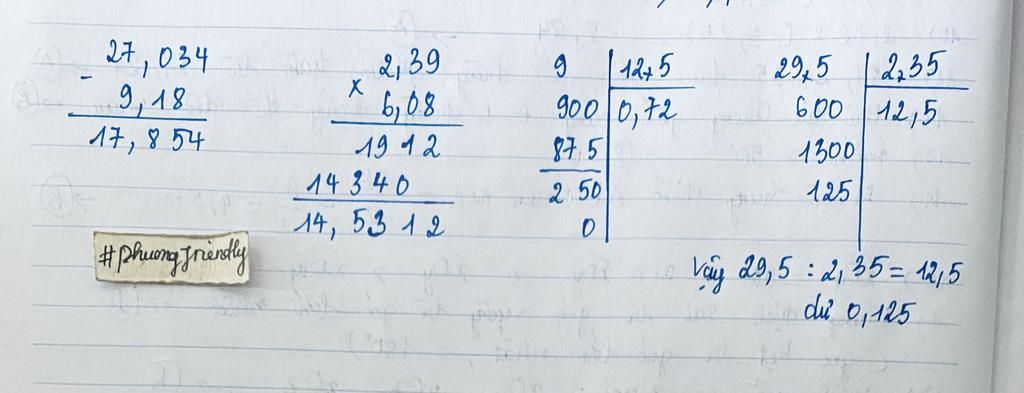 27,034
-
9,18
17,854
2,39
x
6,08
1912
14340
14,5312
9 12,5
900 0,72
87 5
2 50
0
29,5 2,35
600 12,5
1300
125
Vậy 29,5 : 2,35 = 12,5
dư 0,125
#phuongfriendly